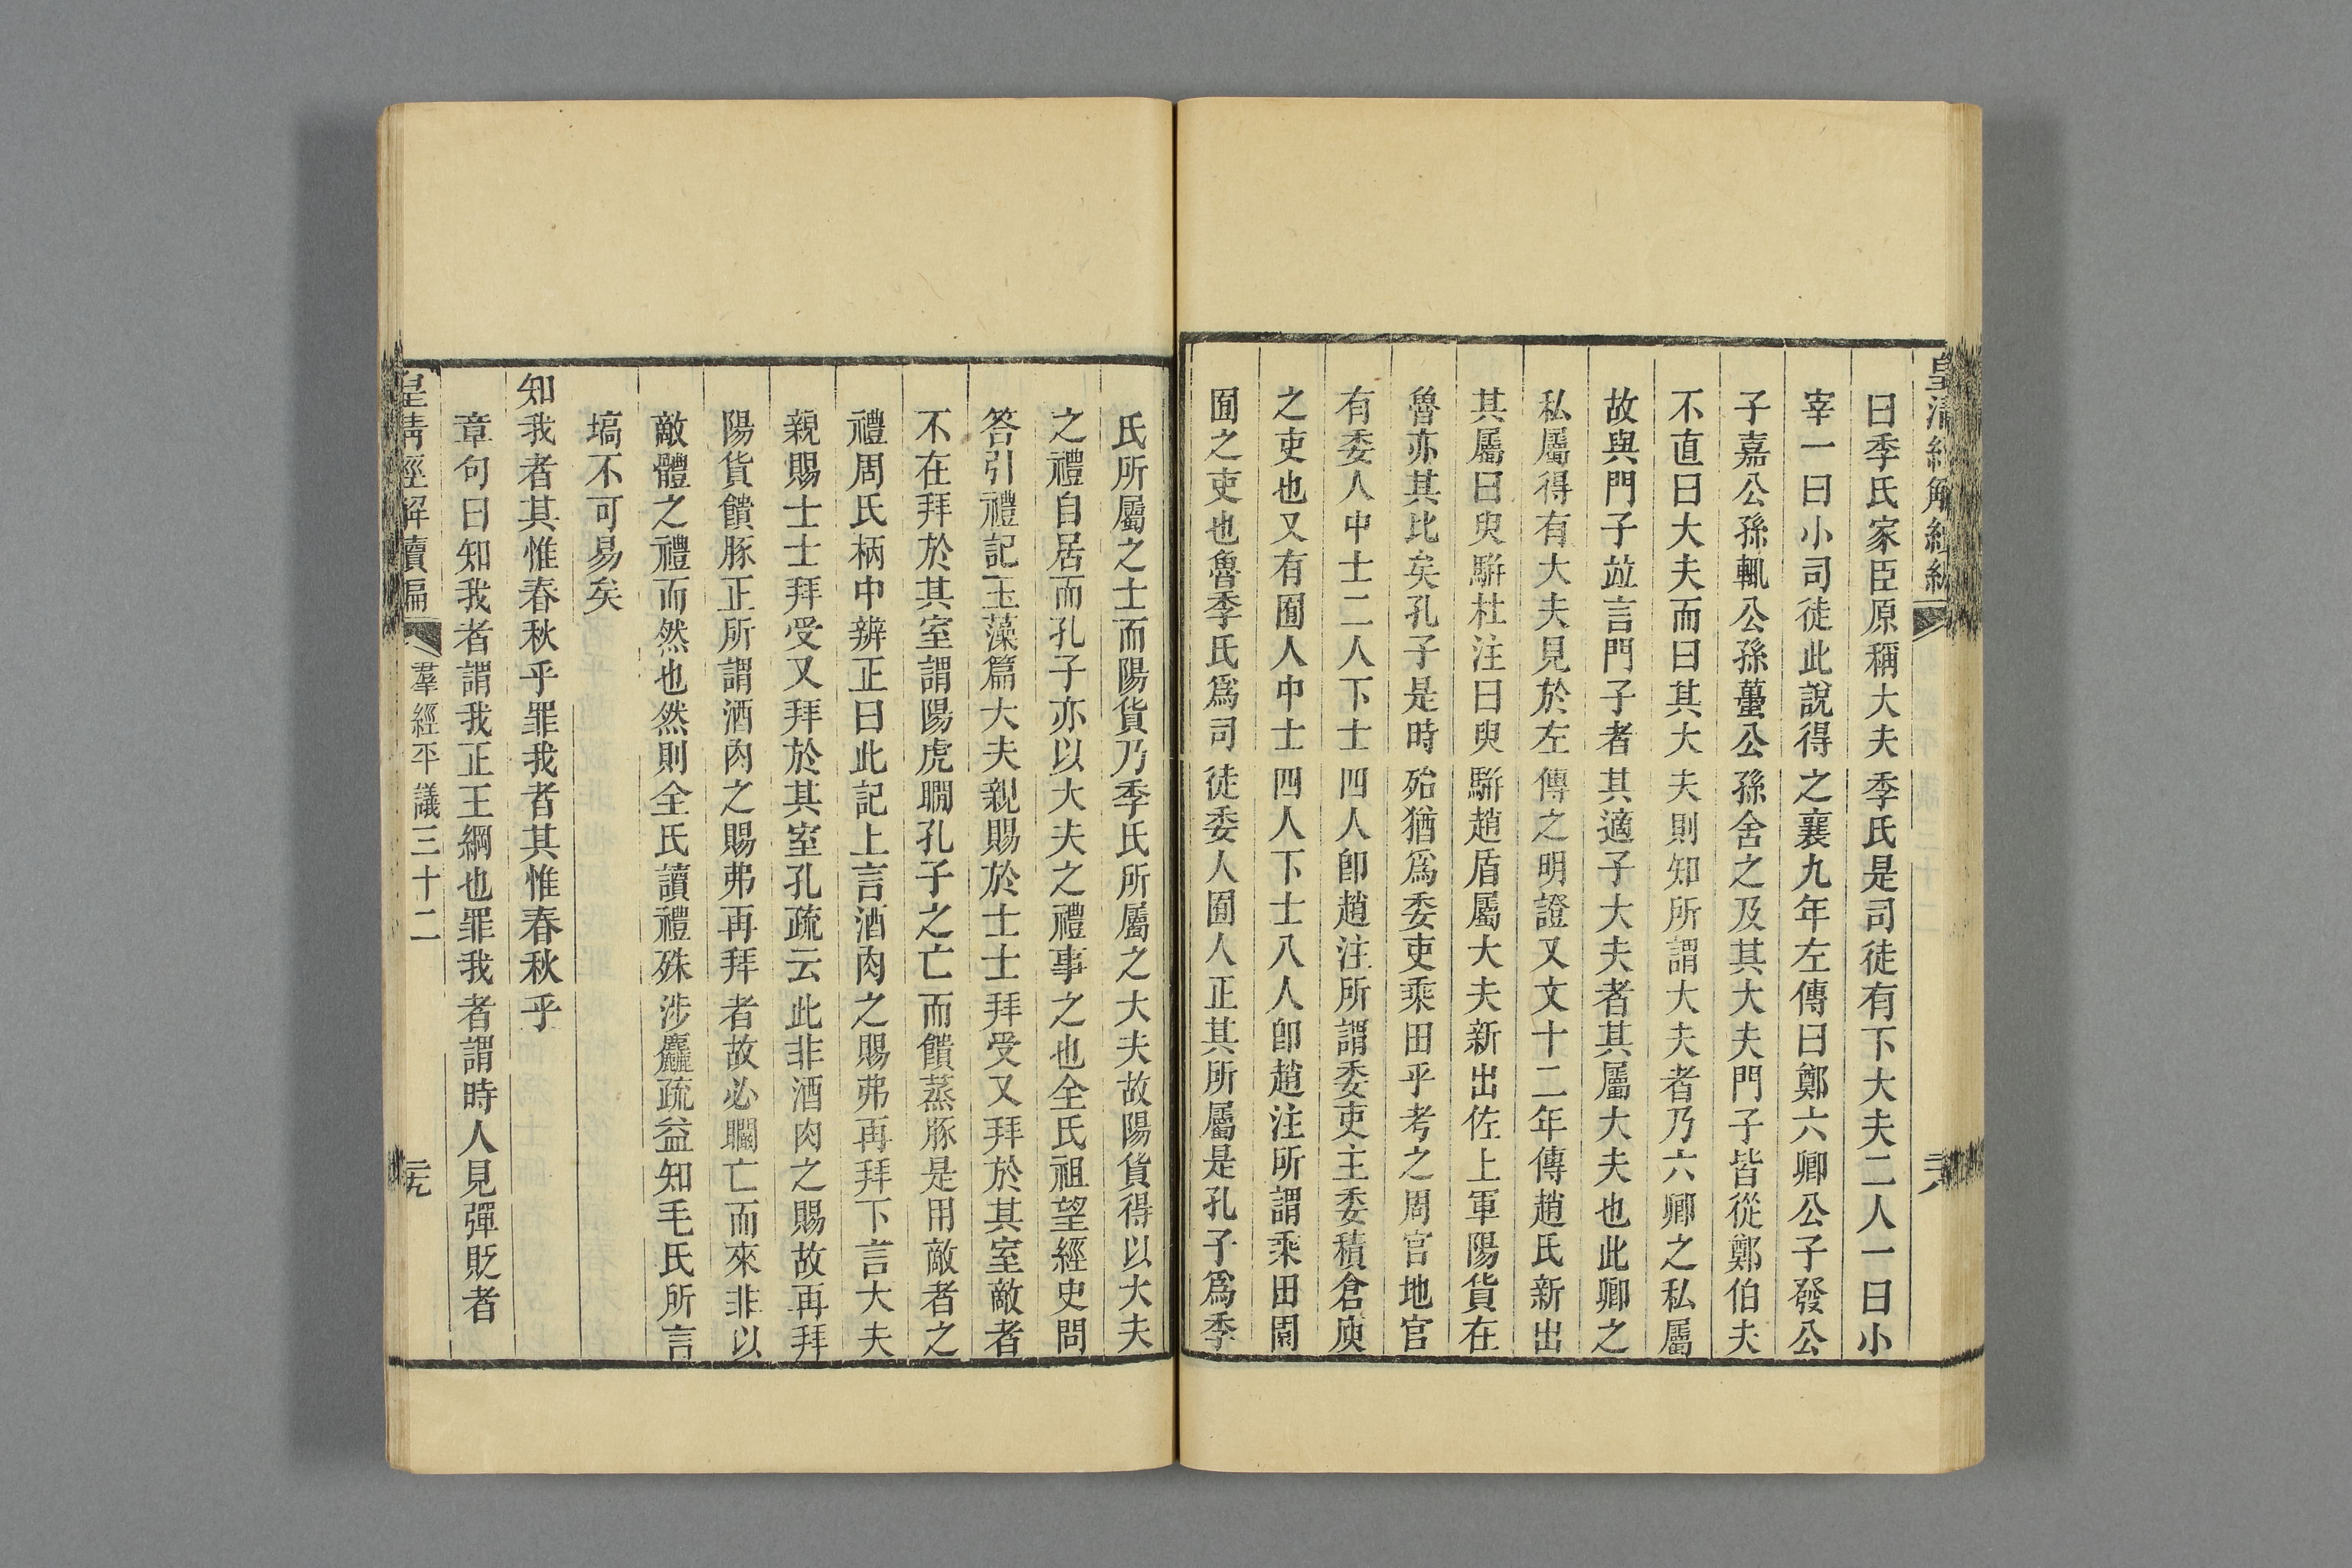 皇清經解續編
卄八
曰季氏家臣原稱大夫季氏是司徒有下大夫二人一曰小
宰一曰小司徒此說得之襄九年左傳曰鄭六卿公子發公
子嘉公孫輒公孫蠆公孫舍之及其大夫門子皆從鄭伯夫
不直曰大夫而曰其大夫則知所謂大夫者乃六卿之私屬
故與門子竝言門子者其適子大夫者其屬大夫也此卿之
私屬得有大夫見於左傳之明證又文十二年傳趙氏新出
其屬曰臾駢杜注曰臾駢趙盾屬大夫新出佐上軍陽貨在
魯亦其比矣孔子是時殆猶爲委吏乘田乎考之周官地官
有委人中士二人下士四人卽趙注所謂委吏主委積倉庾
之吏也又有囿人中士四人下士八人卽趙注所謂乘田園
囿之吏也魯季氏爲司徒委人囿人正其所屬是孔子爲季
氏所屬之士而陽貨乃季氏所屬之大夫故陽貨得以大夫
之禮自居而孔子亦以大夫之禮事之也全氏祖望經史問
答引禮記玉藻篇大夫親賜於士士拜受又拜於其室敵者
不在拜於其室謂陽虎瞯孔子之亡而饋蒸豚是用敵者之
禮周氏柄中辨正曰此記上言酒肉之賜弗再拜下言大夫
親賜士士拜受又拜於其室孔疏云此非酒肉之賜故再拜
陽貨饋豚正所謂酒肉之賜弗再拜者故必瞯亡而來非以
敵體之禮而然也然則全氏讀禮殊涉麤疏益知毛氏所言
塙不可易矣
知我者其惟春秋乎罪我者其惟春秋乎
章句曰知我者謂我正王綱也罪我者謂時人見彈貶者
皇清經解續編
羣經平議三十二
卄九